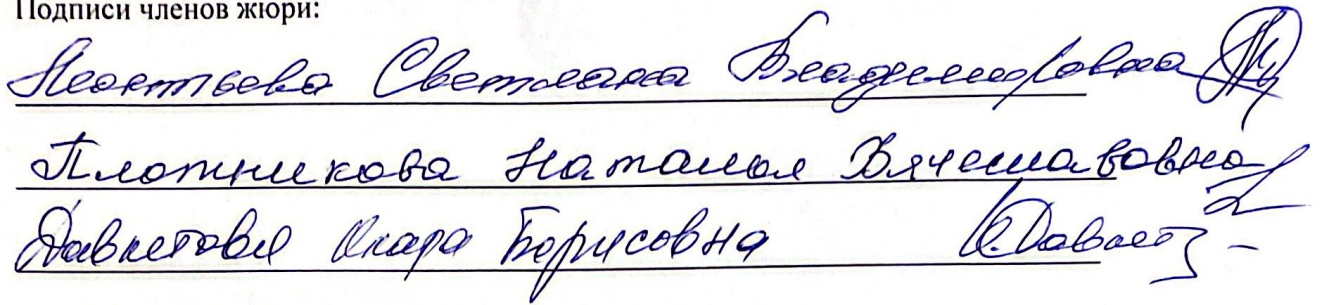 Подписи членов жюри:
Леонтьева Светлана Владимировна
Плотникова Наталья Вячеславовна
Давлетова Борисовна